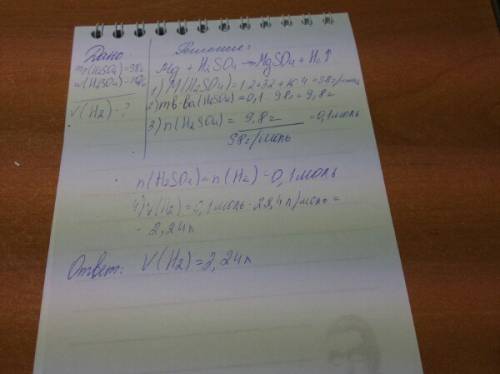 Дано:
m(H₂SO₄)=98г
w(H₂SO₄)=10%
V(H₂)-?
Решение:
Mg + H₂SO₄ → MgSO₄ + H₂↑
1) M(H₂SO₄)=1·2+32+16·4=98г/моль
2) mв-ва(H₂SO₄)=0,1·98г=9,8г
3) n(H₂SO₄)= 9,8г =0,1моль
98г/моль
n(H₂SO₄)=n(H₂)=0,1моль
4) V(H₂)=0,1моль·22,4л/моль=
=2,24л
Ответ: V(H₂)=2,24л